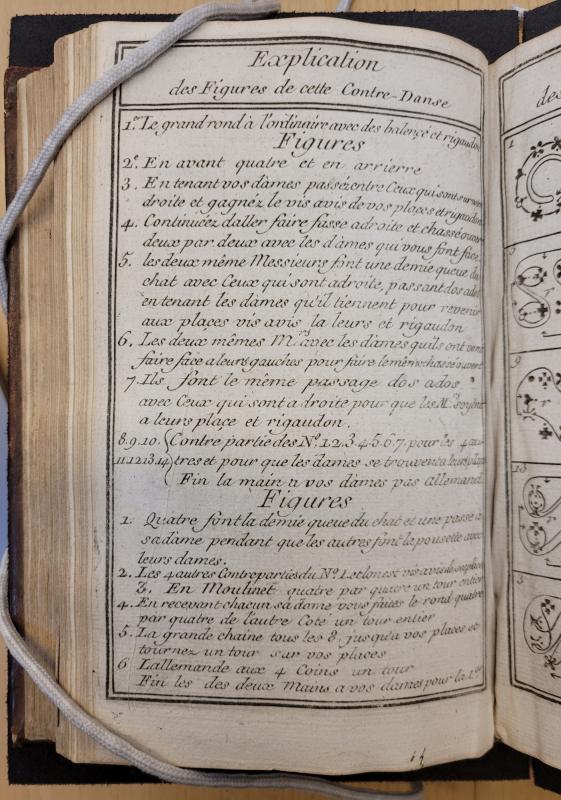 Explication
des Figures de cette Contre-Danse
1.e Le grand rond à l'ordinaire avec des balencé et rigaudon
Figures
2.e En avant quatre et en arrierre
3. En tenant vos dâmes passéz entre Ceux qui sont a votre
droite et gagnéz le vis avis de vos places et rigaudon
4. Continuéz daller faire fasse adroite et chassé ouvert
deux par deux avec les dâmes qui vous font face
5. les deux même Messieurs font une demie queue du
chat avec Ceux qui sont adroite, passant dos ados
en tenant les dâmes qu'il tiennent pour revenir
aux places vis avis la leurs et rigaudon
6. Les deux mêmes M.rs avec les dâmes quils ont vont
faire face a leurs gauches pour faire le même chassé ouvert
7. Ils font le même passage dos ados
avec Ceux qui sont a droite pour que les M.rs soyent
a leurs place et rigaudon.
8.9.10. Contre partie des N.os 1.2.3.4.5.6.7. pour les 4 au
11.12.13.14 tres et pour que les dames se trouvent a leurs places
Fin la main a vos dâmes pas allemand
Figures
1. Quatre font la demie queue du chat et une passe a
sa dâme pendant que les autres font la pousette avec
leurs dames.
2. Les 4 autres Contreparties du N.o 1. et lon est vis avis de sa place
3. En Moulinet quatre par quatre un tour entier
4. En recevant chacun sa dame vous faites le rond quatre
par quatre de l'autre Coté un tour entier
5. La grande chaine tous les 8. jusqu'a vos places et
tournez un tour sur vos places
6 Lallemande aux 4 Coins un tour
Fin les des deux mains a vos dames pour la 1.re
des
1
9
13
3